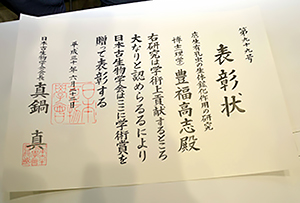 第九十九号
表彰状
原生有孔虫の生体鉱化作用の研究
博士(理学) 豊福高志殿
右研究は学術上貢献するところ
大なりと認めらるるにより
日本古生物学会はここに学術賞を
贈って表彰する
平成三十年六月二十二日
日本古生物学会会長 真鍋 真